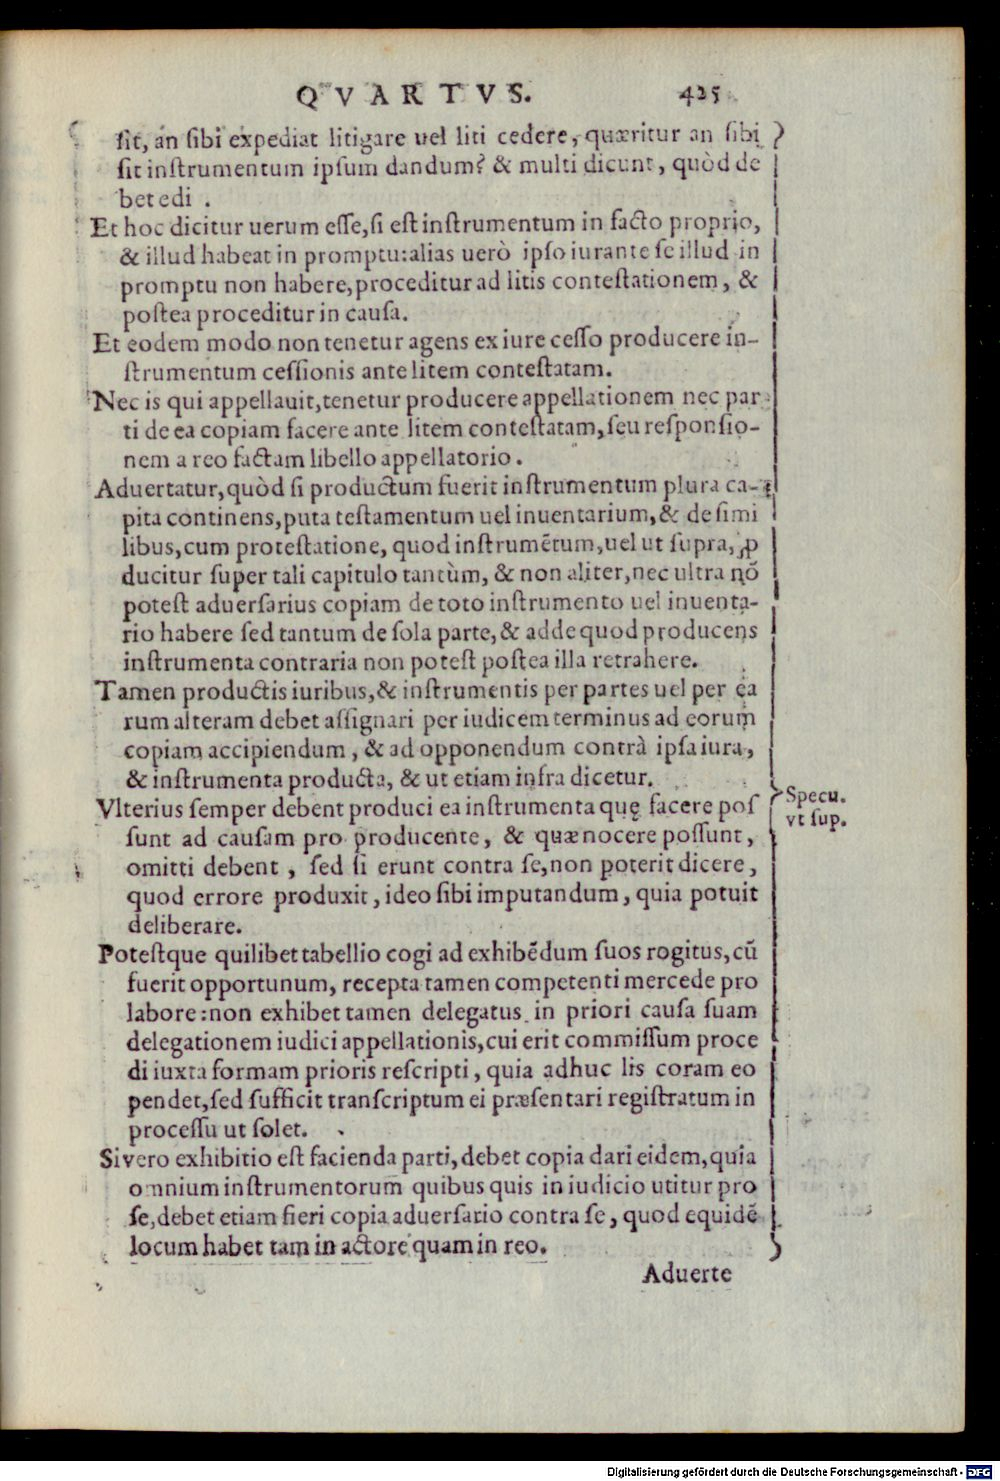 QVARTVS. 425
sit, an sibi expediat litigare uel liti cedere, quæritur an sibi
sit instrumentum ipsum dandum? & multi dicunt, quòd de
bet edi .
Et hoc dicitur uerum esse, si est instrumentum in facto proprio,
& illud habeat in promptu: alias uerò ipso iurante se illud in
promptu non habere, proceditur ad litis contestationem, &
postea proceditur in causa.
Et eodem modo non tenetur agens ex iure cesso producere in-
strumentum cessionis ante litem contestatam.
Nec is qui appellauit, tenetur producere appellationem nec par
ti de ea copiam facere ante litem contestatam, seu responsio-
nem a reo factam libello appellatorio .
Aduertatur, quòd si productum fuerit instrumentum plura ca-
pita continens, puta testamentum uel inuentarium, & de simi
libus, cum protestatione, quod instrumẽtum, uel ut supra, ꝓ
ducitur super tali capitulo tantùm, & non aliter, nec ultra nõ
potest aduersarius copiam de toto instrumento uel inuenta-
rio habere sed tantum de sola parte, & adde quod producens
instrumenta contraria non potest postea illa retrahere.
Tamen productis iuribus, & instrumentis per partes uel per ea
rum alteram debet assignari per iudicem terminus ad eorum
copiam accipiendum , & ad opponendum contrà ipsa iura,
& instrumenta producta, & ut etiam infra dicetur.
Vlterius semper debent produci ea instrumenta quę facere pos
sunt ad causam pro producente, & quæ nocere possunt,
omitti debent , sed si erunt contra se, non poterit dicere,
quod errore produxit, ideo sibi imputandum, quia potuit
deliberare.
Specu.
vt sup.
Potestque quilibet tabellio cogi ad exhibẽdum suos rogitus, cũ
fuerit opportunum, recepta tamen competenti mercede pro
labore: non exhibet tamen delegatus in priori causa suam
delegationem iudici appellationis, cui erit commissum proce
di iuxta formam prioris rescripti, quia adhuc lis coram eo
pendet, sed sufficit transcriptum ei præsentari registratum in
processu ut solet.
Si vero exhibitio est facienda parti, debet copia dari eidem, quia
omnium instrumentorum quibus quis in iudicio utitur pro
se, debet etiam fieri copia aduersario contra se, quod equidẽ
locum habet tam in actore quam in reo.
Aduerte
Digitalisierung gefördert durch die Deutsche Forschungsgemeinschaft - DFG